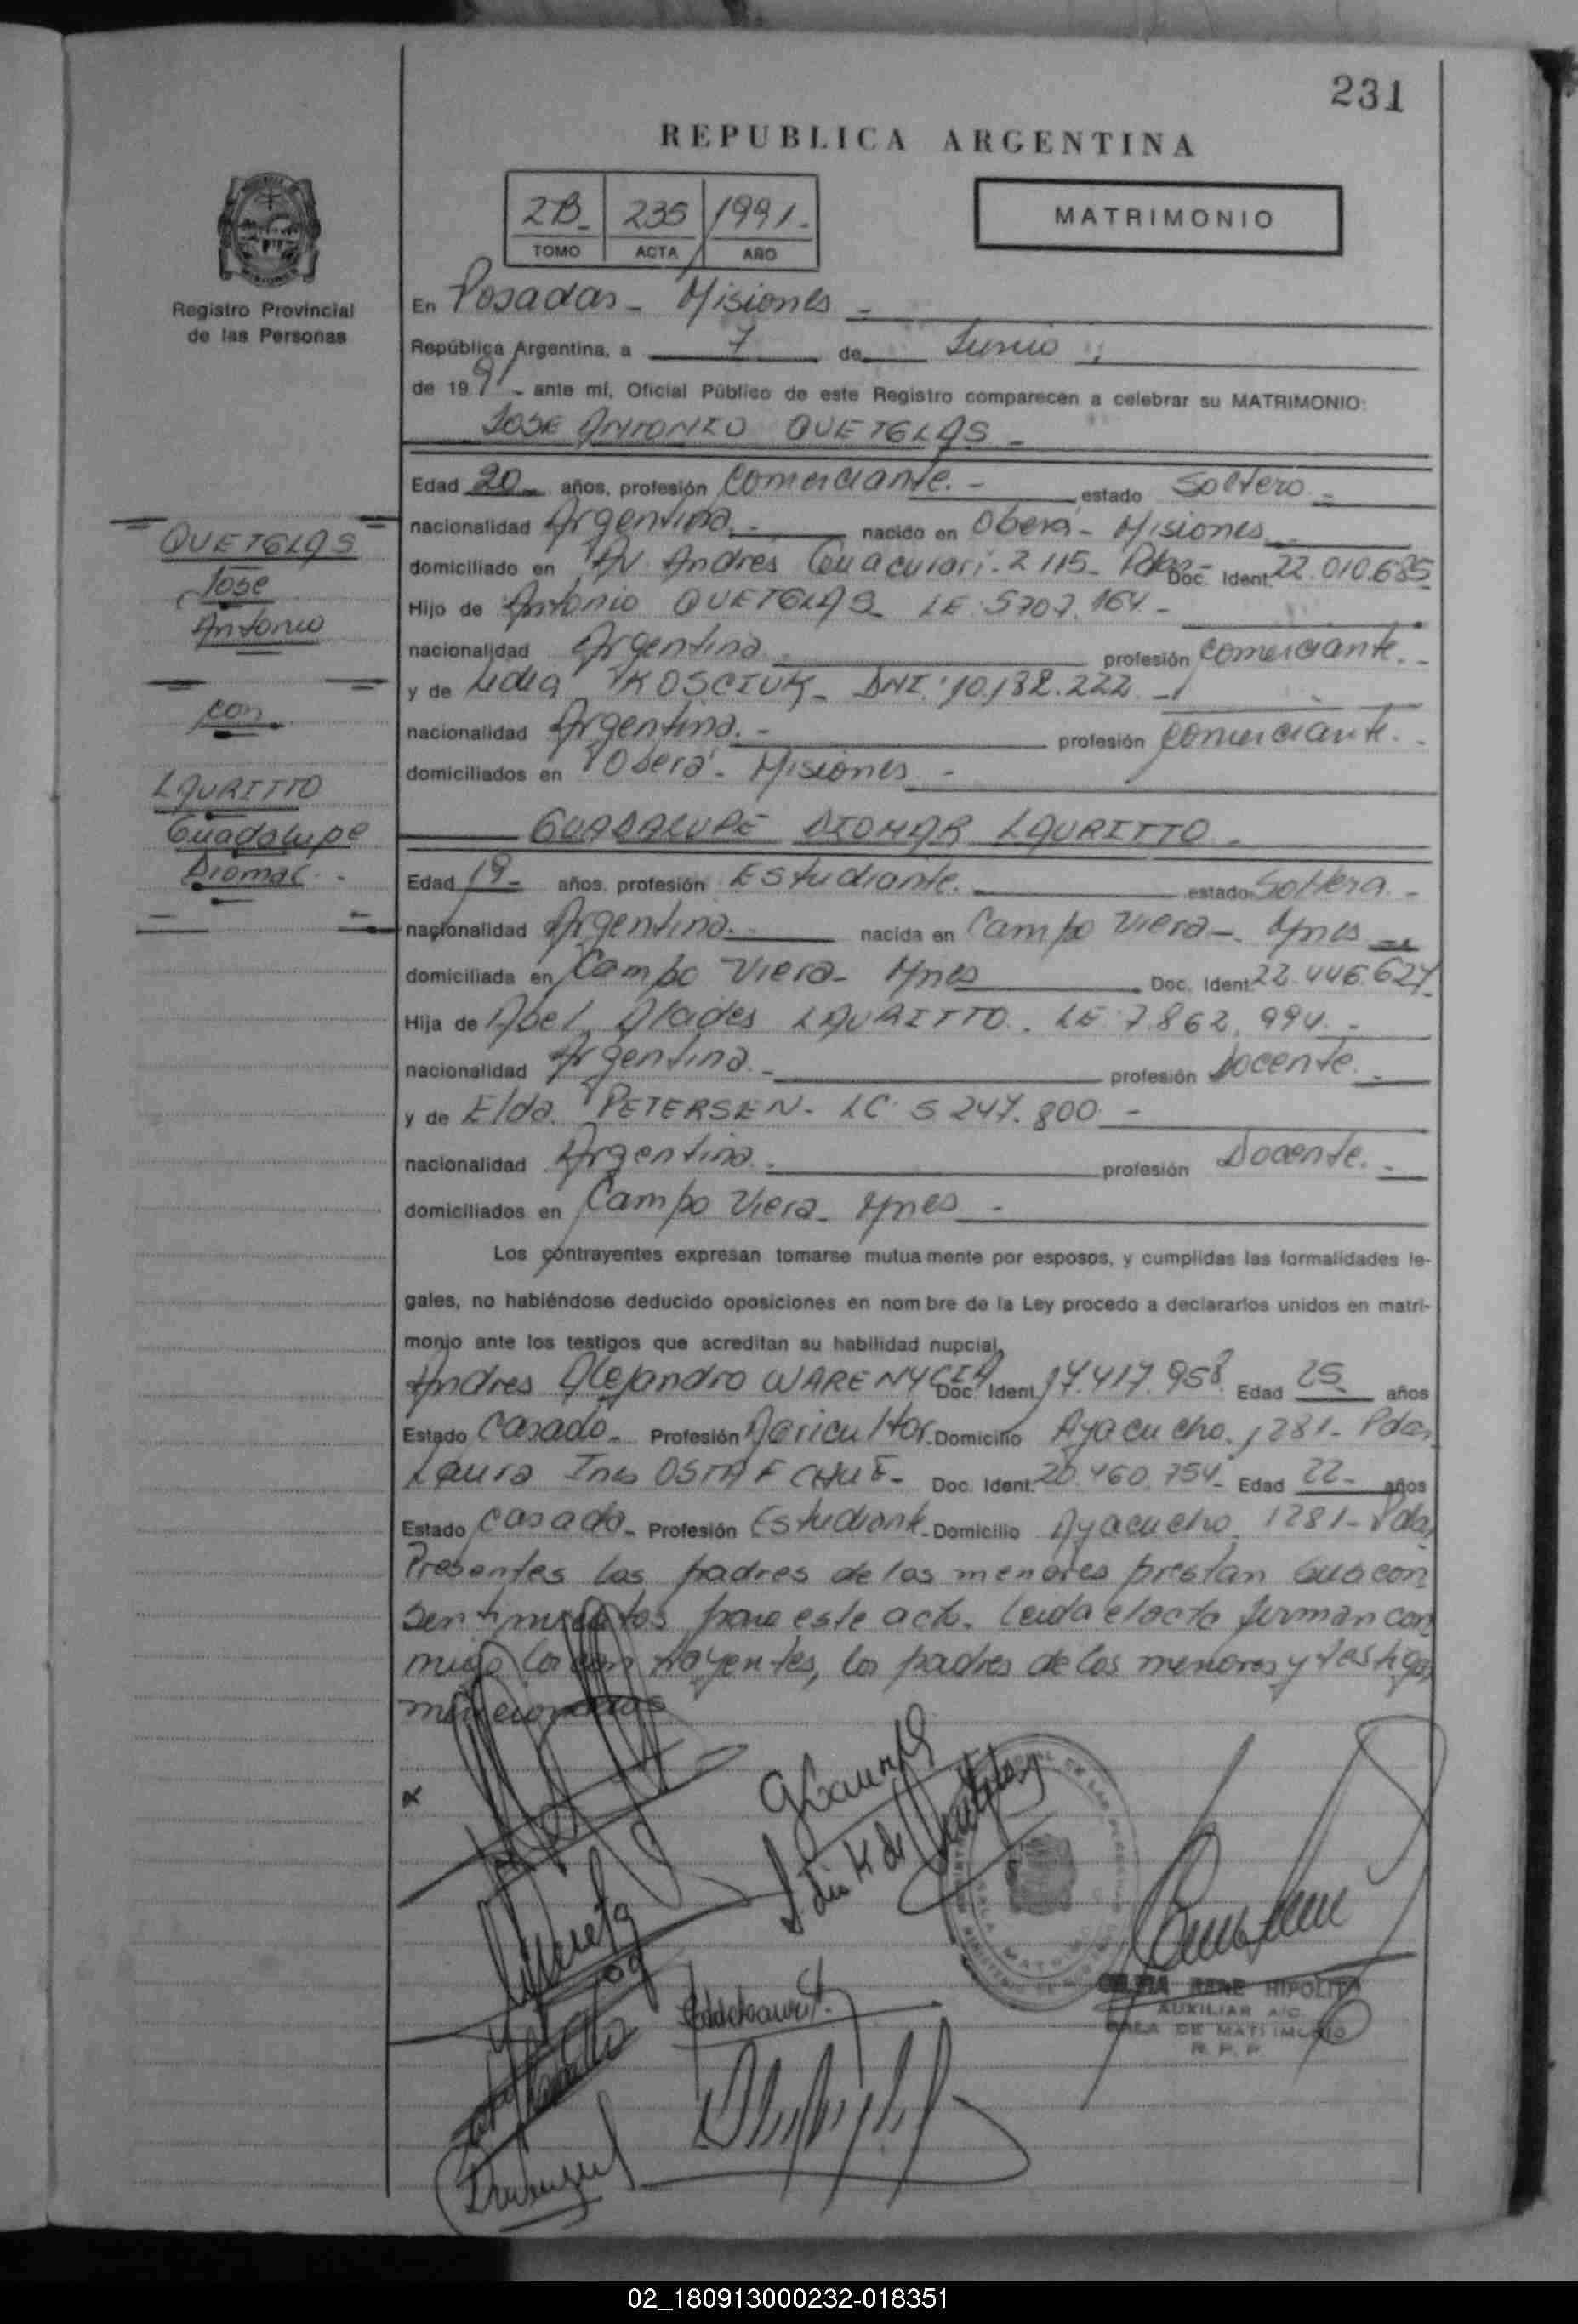 231
REPUBLICA ARGENTINA
2B- 235 1991.-
TOMO ACTA AÑO
MATRIMONIO
Registro Provincial
de las Personas
En Posadas - Misiones -
República Argentina, a 7 de Junio
de 1991- ante mí, Oficial Público de este Registro comparecen a celebrar su MATRIMONIO:
JOSE ANTONIO QUETGLAS -
Edad 20- años, profesión Comerciante. - estado Soltero -
nacionalidad Argentina.- nacido en Oberá - Misiones
domiciliado en Av. Andres Guacurari. 2115- Pdas- Doc. Ident. 22.010.685
Hijo de Antonio QUETGLAS LE 5707.164-
nacionalidad Argentina profesión Comerciante.-
y de Lidia KOSCIUK- DNI. 10.132.222 -
nacionalidad Argentina. - profesión Comerciante.
domiciliados en Oberá - Misiones -
QUETGLAS
Jose
Antonio
con
LAURITTO
Guadalupe
Diomar -
GUADALUPE DIOMAR LAURITTO -
Edad 19- años, profesión Estudiante. estado Soltera -
nacionalidad Argentina. nacida en Campo Viera - Mnes
domiciliada en Campo Viera - Mnes Doc. Ident. 22.446.627
Hija de Abel Alcides LAURITTO. LE 7.862.994. -
nacionalidad Argentina - profesión Docente.
y de Elda PETERSEN - LC 5 247.800 -
nacionalidad Argentina. profesión Docente. -
domiciliados en Campo Viera - Mnes -
Los contrayentes expresan tomarse mutua mente por esposos, y cumplidas las formalidades le-
gales, no habiéndose deducido oposiciones en nom bre de la Ley procedo a declararlos unidos en matri-
monio ante los testigos que acreditan su habilidad nupcial,
Andres Alejandro WARENYCIA Doc. Ident. 17.417.958 Edad 25 años
Estado Casado - Profesión Agricultor - Domicilio Ayacucho. 1281- Pdas.
Laura Ines Doc. Ident. 20.460.754- Edad 22- años
Estado Casada - Profesión Estudiante - Domicilio Ayacucho 1281- Pdas
Presentes los padres de los menores prestan sus con
sentimientos para este acto. Leida el acta firman con
migo los con trayentes, los padres de los menores y testigos
mencionados
HIPOLITO
AUXILIAR A/C.
SALA DE MATRIMONIO
R. P. P.
02_180913000232-018351